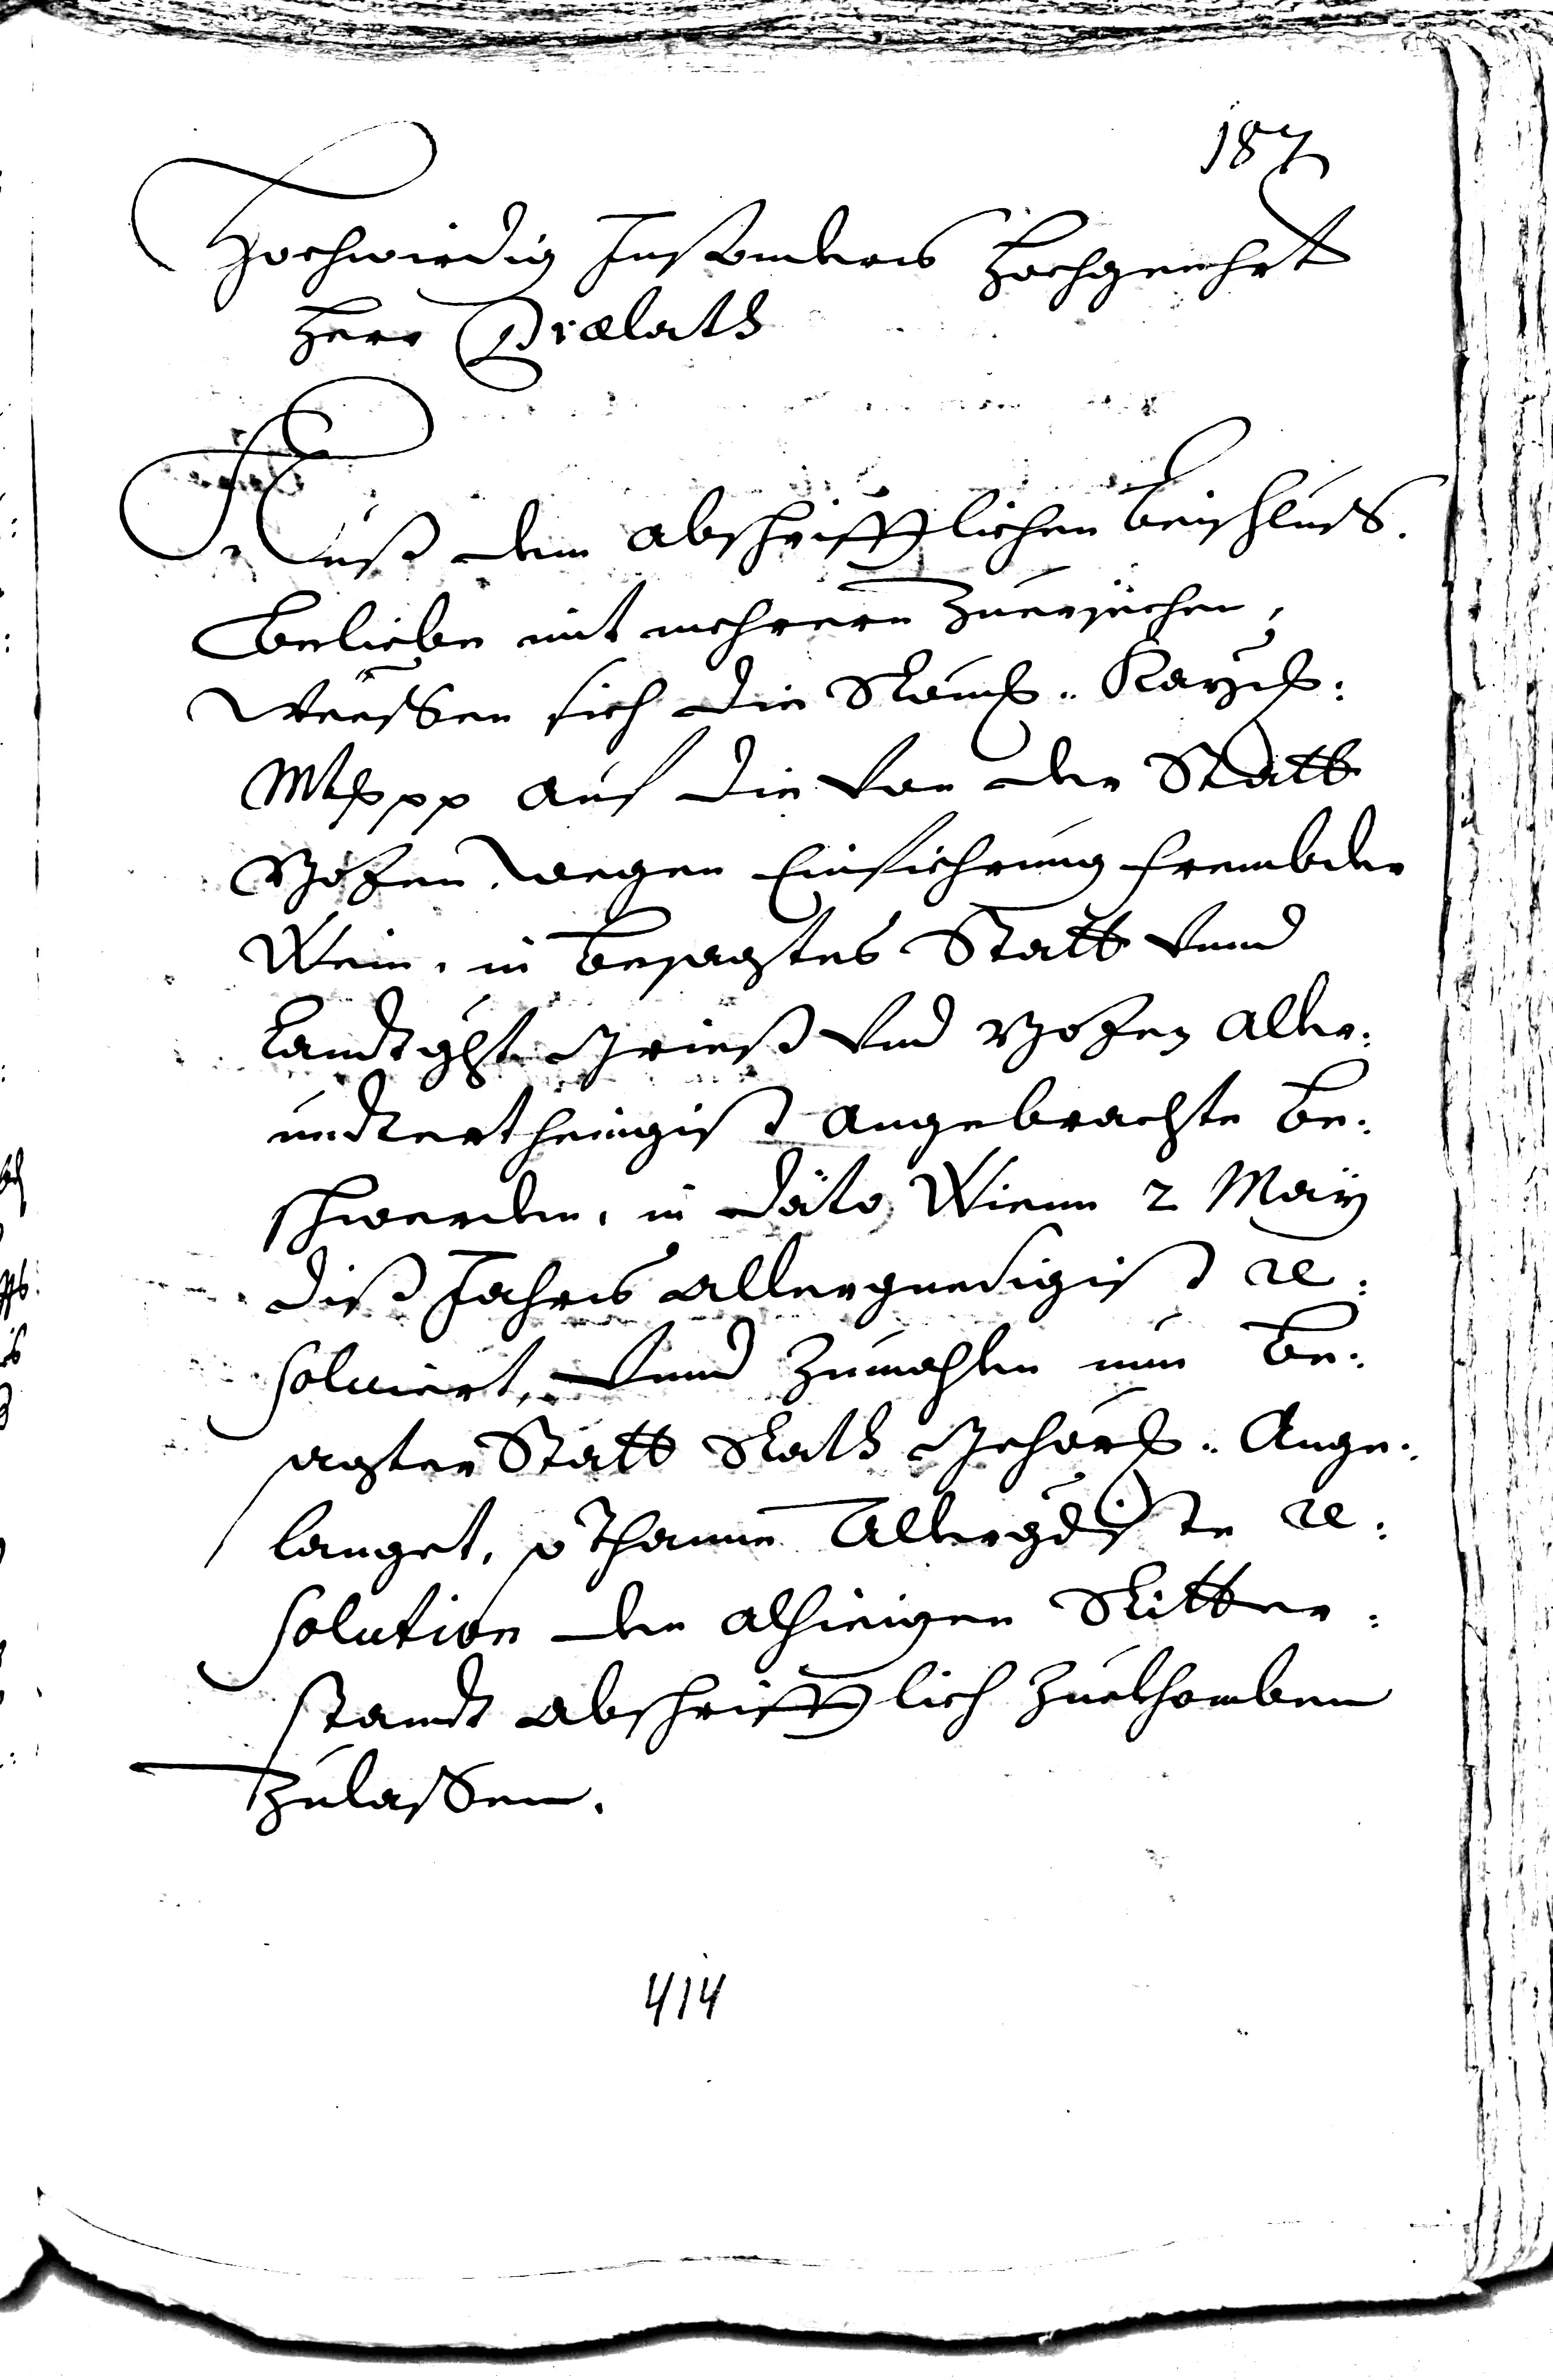 187
Hochwürdig Insonders Hochgeehrt
Herr Prælath
Auß dem abschrifftlichen Beischluss.
Beliebe mit mehrern zuersechen,
Wessen sich die Römis: Kayß:
Mt: ppp auf die von der Statt
Bozen wegen Einfiehrung frembder
Wein, in besagtes Statt vnnd
Landtght Grieß vnd Bozen aller:
undterthenigist angebrachte be:
schwerden, in dato Wienn 2 May
diß Jahrs allergnedigist re:
solviert, vnnd zumahlen nun be:
sagter Statt Rath gehors: Ange:
langet, sothanne Allergdiste re:
solution den alhieigen Ritter:
standt abschrifftlich zuekhomben
zulassen.
414